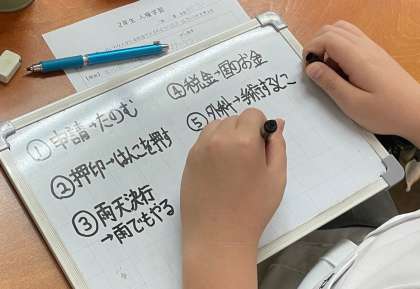 2年生 人権学習
①申請→たのむ
②押印→はんこを押す
③雨天決行
→雨でもやる
④税金→国のお金
⑤外科→手術するとこ